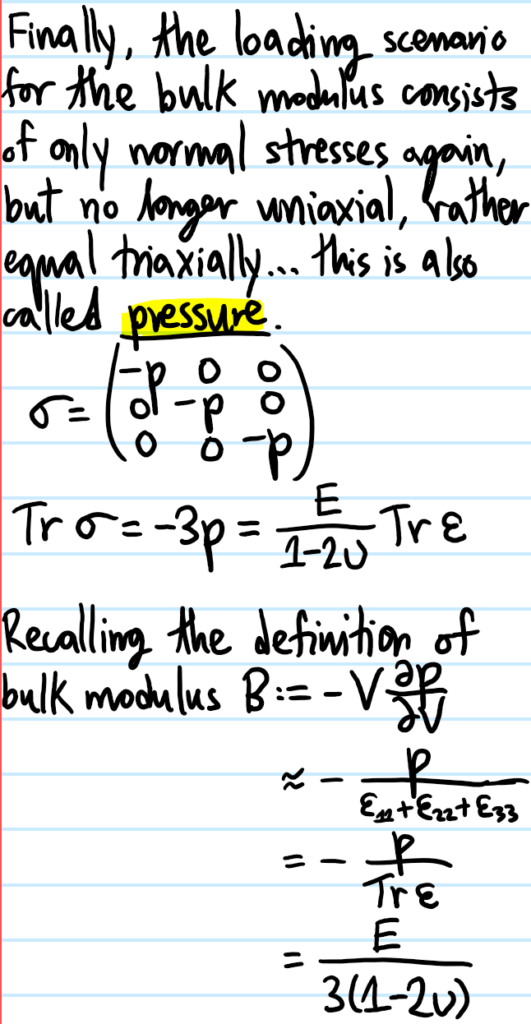 Finally, the loading scenario
for the bulk modulus consists
of only normal stresses again,
but no longer uniaxial, rather
equal triaxially... this is also
called pressure.
σ = (-p 0 0
0 -p 0
0 0 -p)
Tr σ = -3p = E/(1-2υ) Tr ε
Recalling the definition of
bulk modulus B := -V ∂p/∂V
≈ - p/(ε₁₁+ε₂₂+ε₃₃)
= - p/Tr ε
= E/(3(1-2υ))